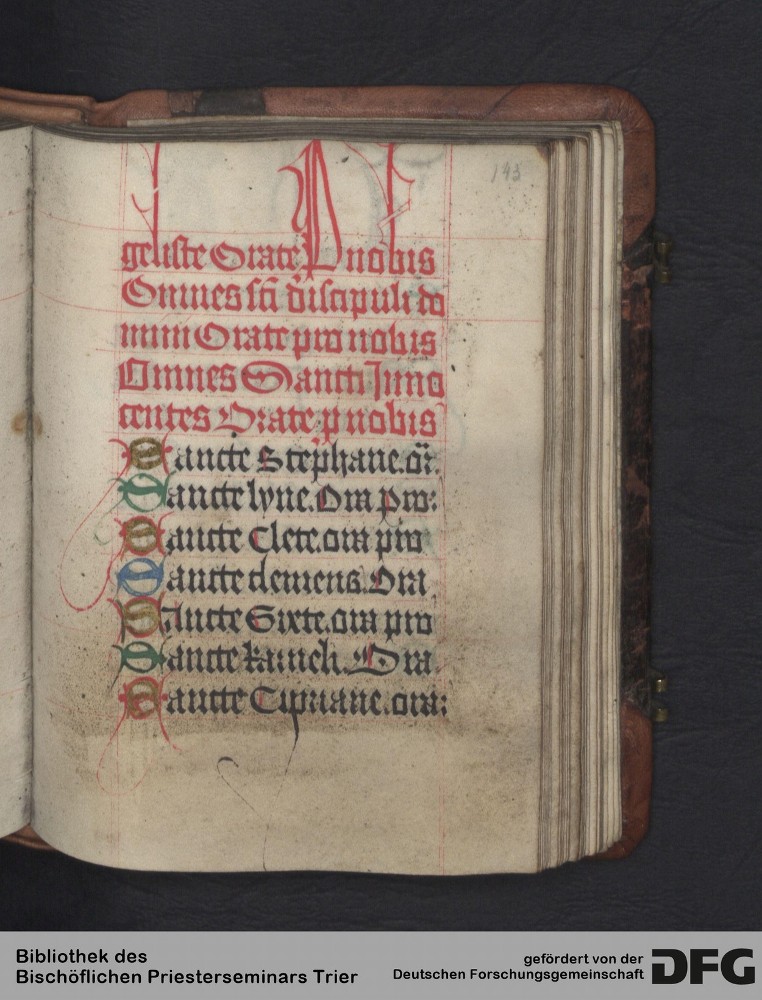 143
geliste Orate P nobis
Omnes sc̄i discipuli do
mini Orate pro nobis
Omnes Sancti Inno
centes Orate p nobis
Sancte Stephane.or̄.
Sancte lyne.Ora pro:
Sancte Clete.ora pro
Sancte clemens.Ora
Sancte Sixte.ora pro
Sancte Ora
Sancte Cipriane.ora:
Bibliothek des
Bischöflichen Priesterseminars Trier
gefördert von der
Deutschen Forschungsgemeinschaft
DFG